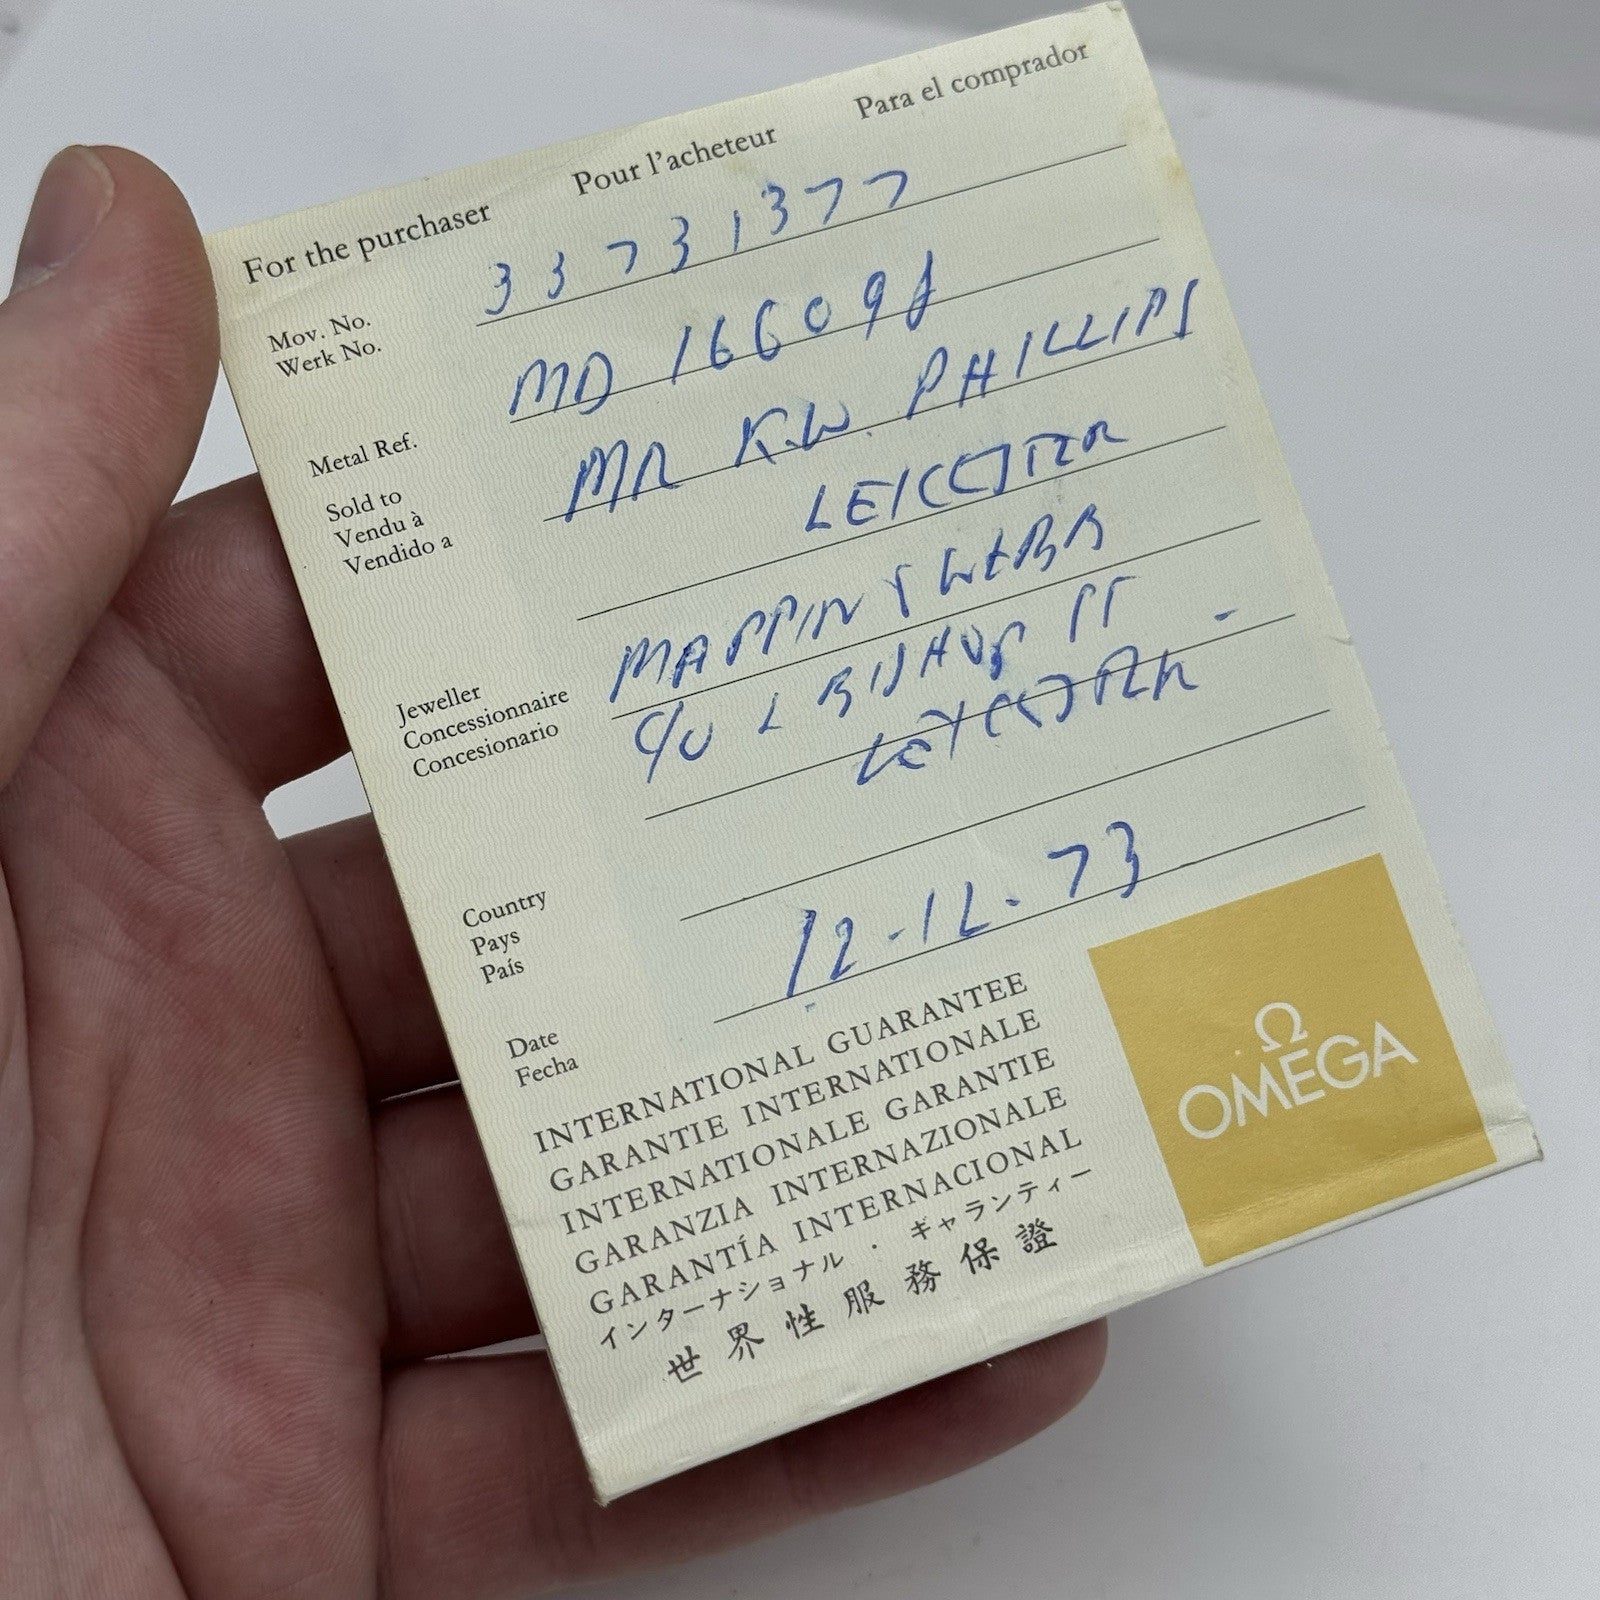 For the purchaser Pour l'acheteur Para el comprador
Mov. No. 33731377
Werk No.
Metal Ref. MD 166091
Sold to MR K.W. PHILLIPS
Vendu à
Vendido a LEICESTER
Jeweller MAPPIN & WEBB
Concessionnaire
Concesionario C/O L BISHOP
LEICESTER
Country
Pays
País
Date 12-12-73
Fecha
INTERNATIONAL GUARANTEE
GARANTIE INTERNATIONALE
INTERNATIONALE GARANTIE
GARANZIA INTERNAZIONALE
GARANTÍA INTERNACIONAL
インターナショナル・ギャランティー
世界性服務保證
Ω
OMEGA